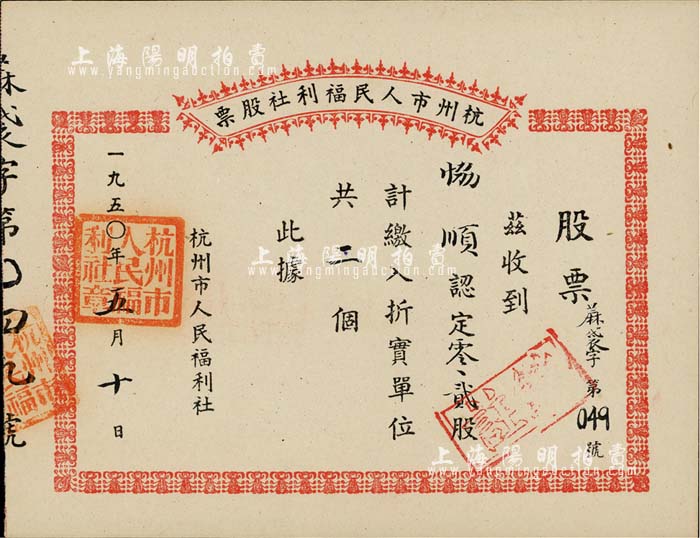 杭州市人民福利社股票
股票
蔴袋字第049號
茲收到
協順認定零零貳股
計繳入折實單位
共二個
此據
杭州市人民福利社
一九五〇年五月十日
杭州市人民福利社章
蔴袋字第〇四九號
上海陽明拍賣
www.yangmingauction.com
上海陽明拍賣
www.yangmingauction.com
上海陽明拍賣
www.yangmingauction.com